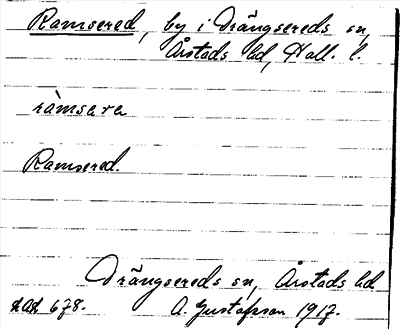 Ramsered, by i Drängsereds sn,
Årstads hd, Hall. l.
ràmsara
Ramsered.
Drängsereds sn, Årstads hd
678. A. Gustafsson 1917.